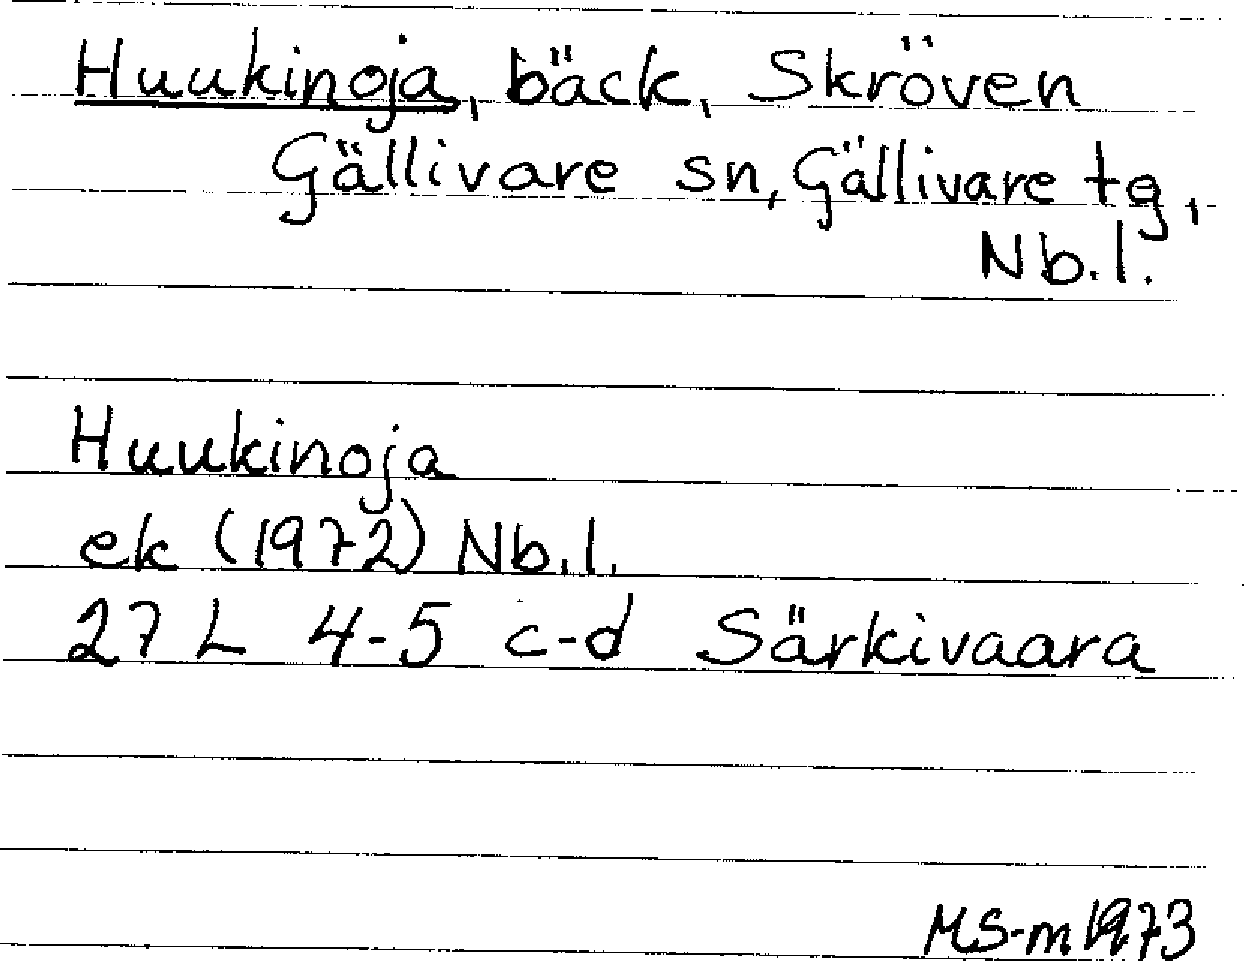 Huukinoja, bäck, Skröven
Gällivare sn, Gällivare tg,
Nb.l.
Huukinoja
ek (1972) Nb.l.
27 L 4-5 c-d Särkivaara
MS-m 1973